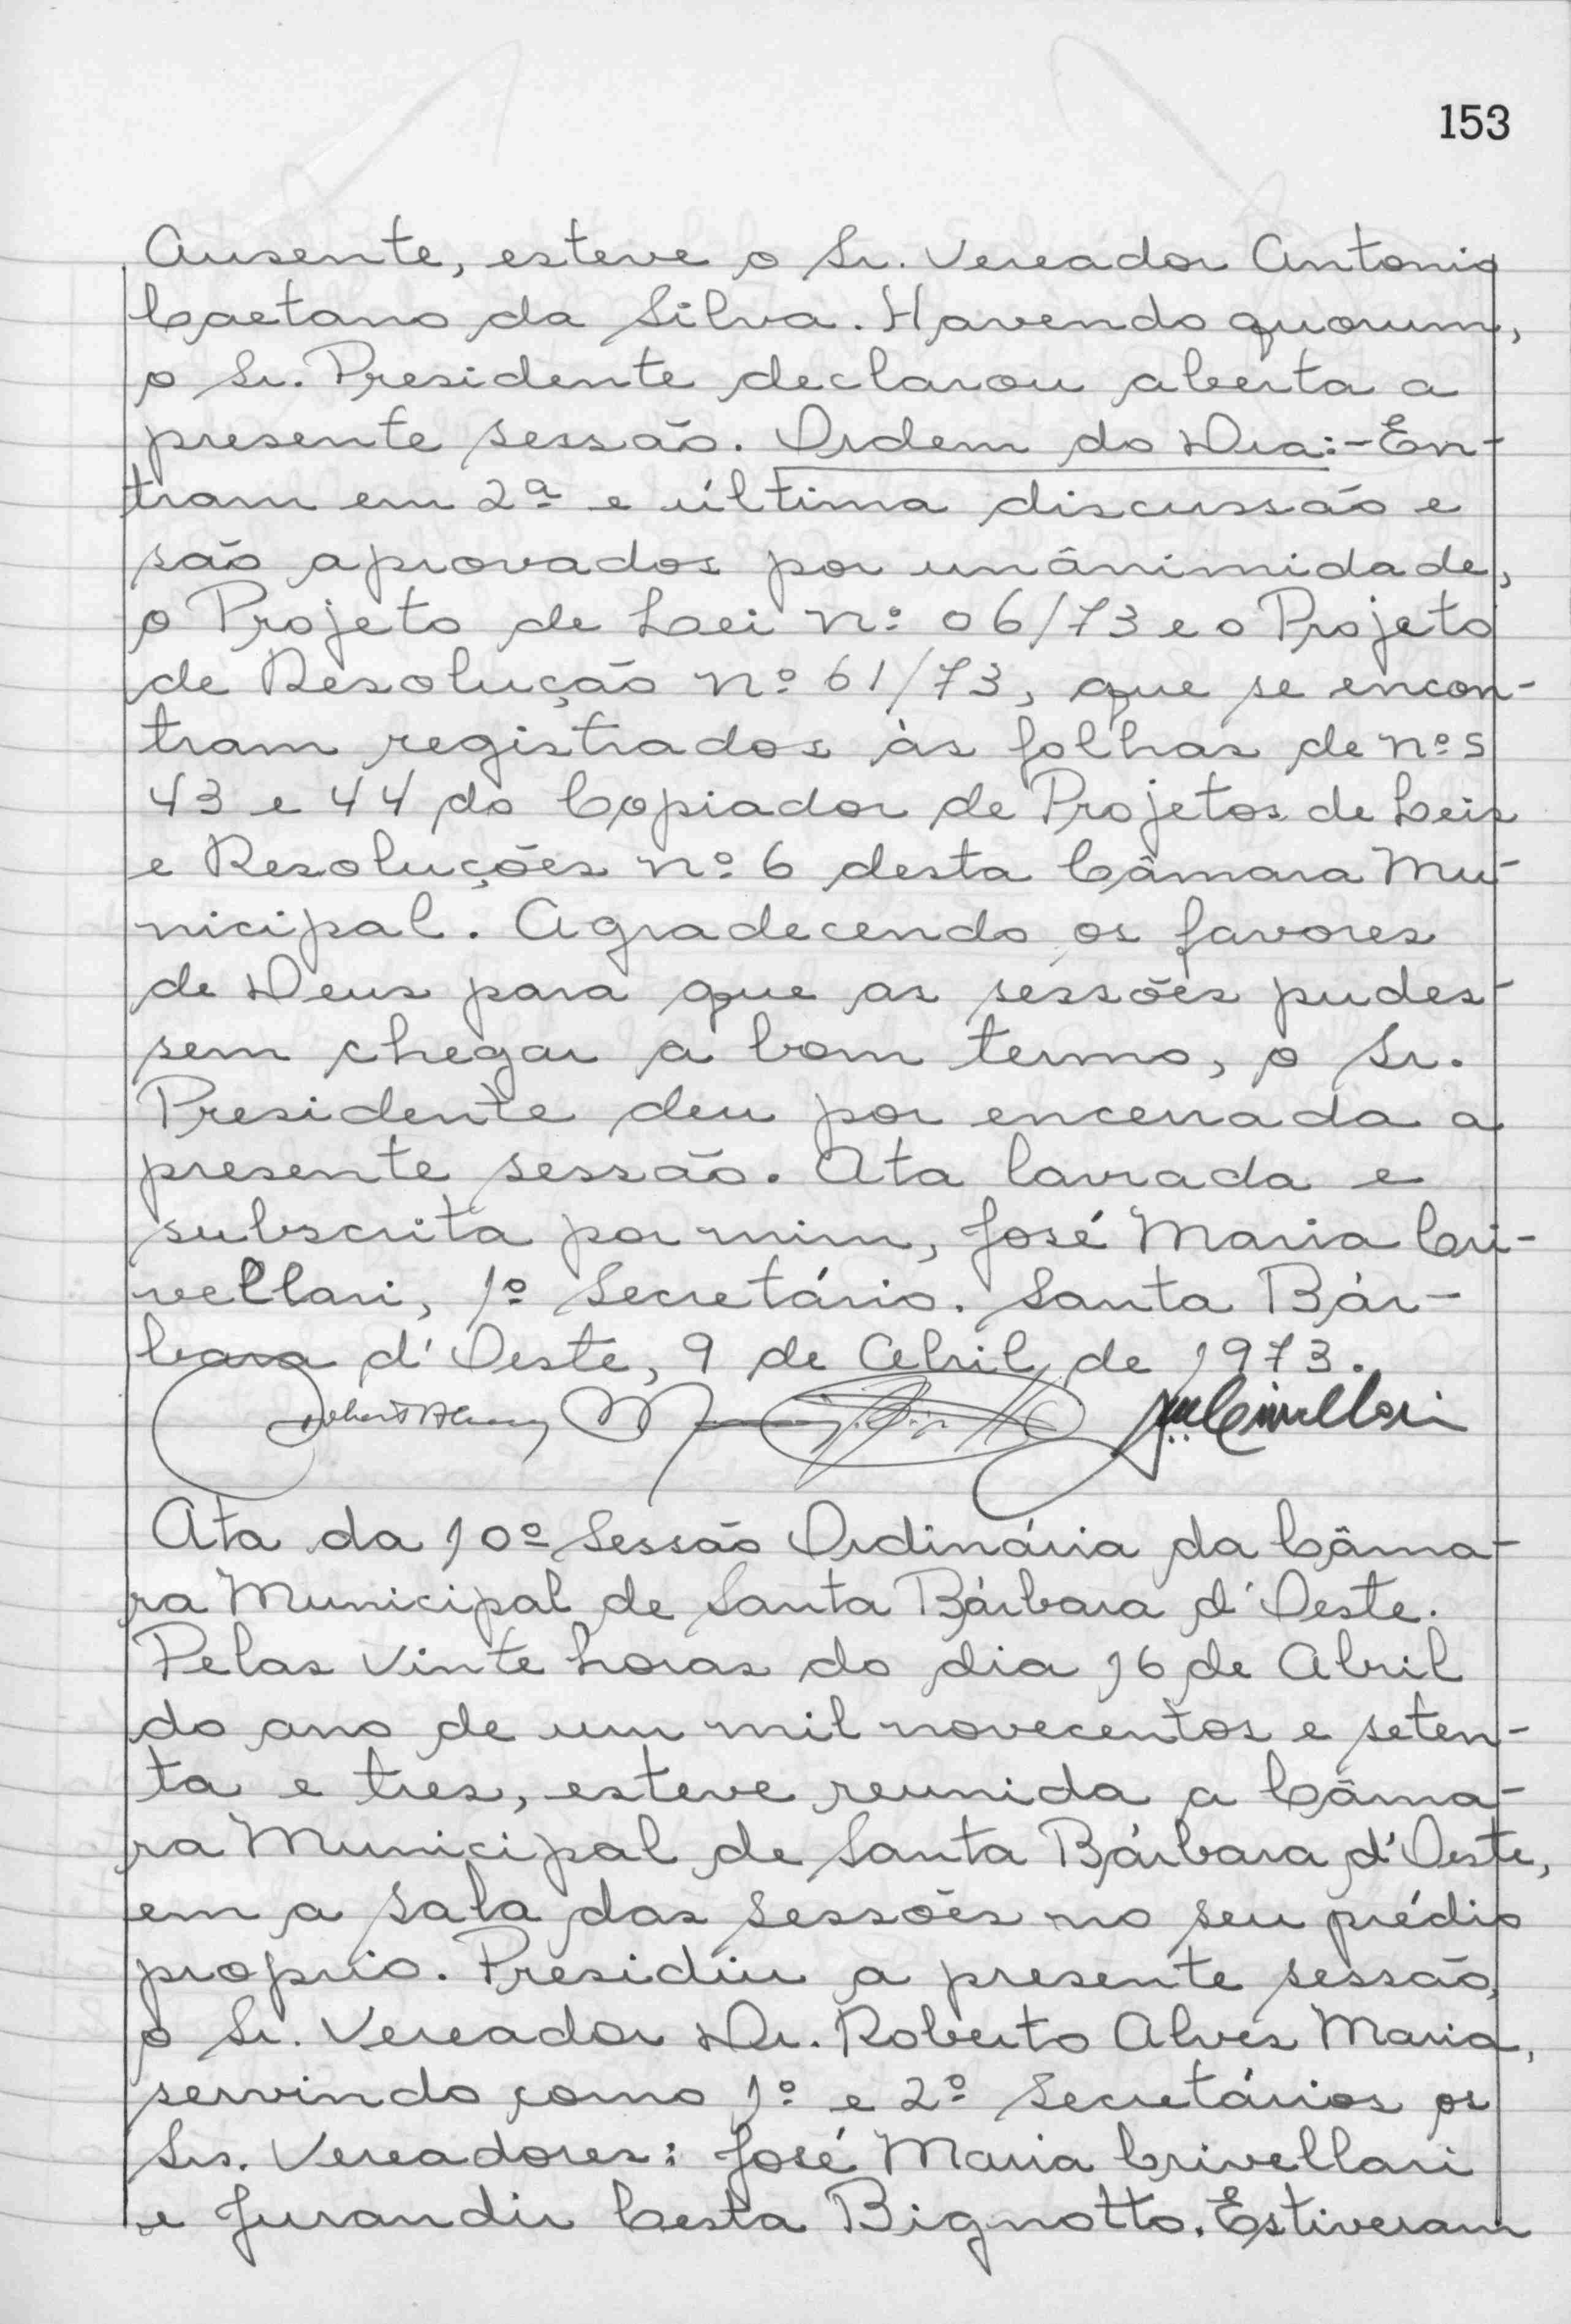 153
Ausente, esteve o Sr. Vereador Antonio
Caetano da Silva. Havendo quorum,
o Sr. Presidente declarou aberta a
presente sessão. Ordem do Dia:- En-
tram em 2ª e última discussão e
são aprovados por unânimidade,
o Projeto de Lei nº 06/73 e o Projeto
de Resolução nº 61/73, que se encon-
tram registrados às folhas de nºs
43 e 44 do Copiador de Projetos de Leis
e Resoluções nº 6 desta Câmara Mu-
nicipal. Agradecendo os favores
de Deus para que as sessões pudes-
sem chegar a bom termo, o Sr.
Presidente deu por encerrada a
presente sessão. Ata lavrada e
subscrita por mim, José Maria Cri-
vellari, 1º Secretário. Santa Bár-
bara d'Oeste, 9 de Abril de 1973.
Ata da 10º Sessão Ordinária da Câma-
ra Municipal de Santa Bárbara d'Oeste.
Pelas vinte horas do dia 16 de Abril
do ano de um mil novecentos e seten-
ta e tres, esteve reunida a Câma-
ra Municipal de Santa Bárbara d'Oeste,
em a sala das sessões no seu prédio
proprio. Presidiu a presente sessão,
o Sr. Vereador Dr. Roberto Alves Maria,
servindo como 1º e 2º Secretários os
Srs. Vereadores: José Maria Crivellari
e Jurandir Cesta Bignotto. Estiveram